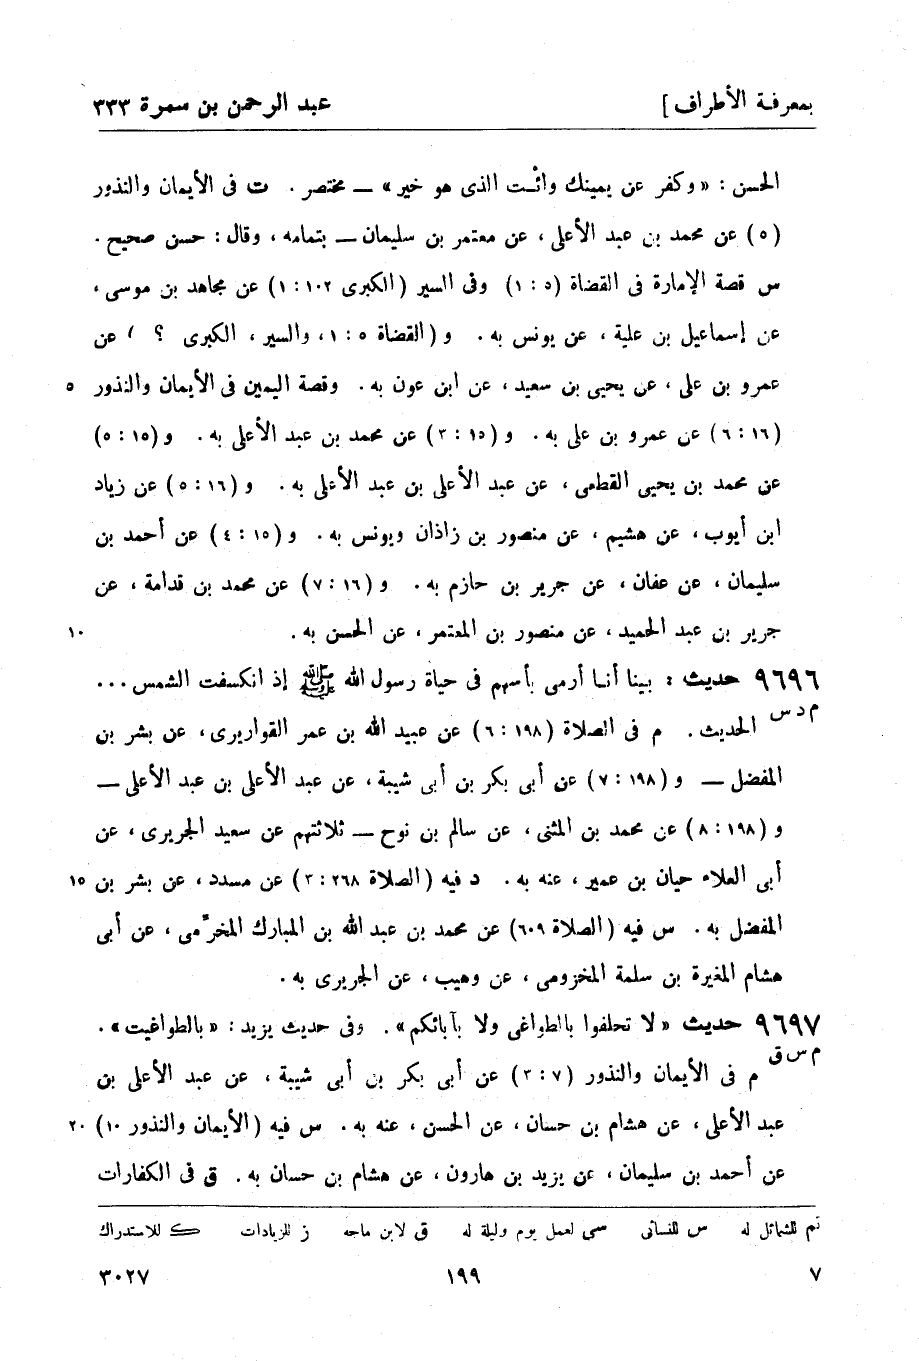 بمعرفة الأطراف ] عبد الرحمن بن سمرة ٣٣٣
الحسن : «وكفر عن يمينك وائْت الذى هو خير» — مختصر . ت فى الأيمان والنذور
(٥) عن محمد بن عبد الأعلى ، عن معتمر بن سليمان — بتمامه ، وقال : حسن صحيح .
س قصة الإمارة فى القضاة (٥ : ١) وفى السير (الكبرى ١٠٢ : ١) عن مجاهد بن موسى ،
عن إسماعيل بن علية ، عن يونس به . و (القضاة ٥ : ١ ، والسير ، الكبرى ؟ ) عن
عمرو بن على ، عن يحيى بن سعيد ، عن ابن عون به . وقصة اليمين فى الأيمان والنذور ٥
(١٦ : ٦) عن عمرو بن على به . و (١٥ : ٣) عن محمد بن عبد الأعلى به . و (١٥ : ٥)
عن محمد بن يحيى القطعى ، عن عبد الأعلى بن عبد الأعلى به . و (١٦ : ٥) عن زياد
ابن أيوب ، عن هشيم ، عن منصور بن زاذان ويونس به . و (١٥ : ٤) عن أحمد بن
سليمان ، عن عفان ، عن جرير بن حازم به . و (١٦ : ٧) عن محمد بن قدامة ، عن
جرير بن عبد الحميد ، عن منصور بن المعتمر ، عن الحسن به . ١٠
٩٦٩٦ حديث : بينا أنا أرمى بأسهم فى حياة رسول الله ﷺ إذ انكسفت الشمس ...
م د س الحديث . م فى الصلاة (١٩٨ : ٦) عن عبيد الله بن عمر القواريرى ، عن بشر بن
المفضل — و (١٩٨ : ٧) عن أبى بكر بن أبى شيبة ، عن عبد الأعلى بن عبد الأعلى —
و (١٩٨ : ٨) عن محمد بن المثنى ، عن سالم بن نوح — ثلاثتهم عن سعيد الجريرى ، عن
أبى العلاء حيان بن عمير ، عنه به . د فيه (الصلاة ٢٦٨ : ٣) عن مسدد ، عن بشر بن ١٥
المفضل به . س فيه (الصلاة ٦٠٩) عن محمد بن عبد الله بن المبارك المخرّمى ، عن أبى
هشام المغيرة بن سلمة المخزومى ، عن وهيب ، عن الجريرى به .
٩٦٩٧ حديث «لا تحلفوا بالطواغى ولا بآبائكم» . وفى حديث يزيد : «بالطواغيت» .
م س ق م فى الأيمان والنذور (٧ : ٣) عن أبى بكر بن أبى شيبة ، عن عبد الأعلى بن
عبد الأعلى ، عن هشام بن حسان ، عن الحسن ، عنه به . س فيه (الأيمان والنذور ١٠) ٢٠
عن أحمد بن سليمان ، عن يزيد بن هارون ، عن هشام بن حسان به . ق فى الكفارات
تم للشمائل له س للنسائى سى لعمل يوم وليلة له ق لابن ماجه ز للزيادات ك للاستدراك
٧ ١٩٩ ٣٠٢٧